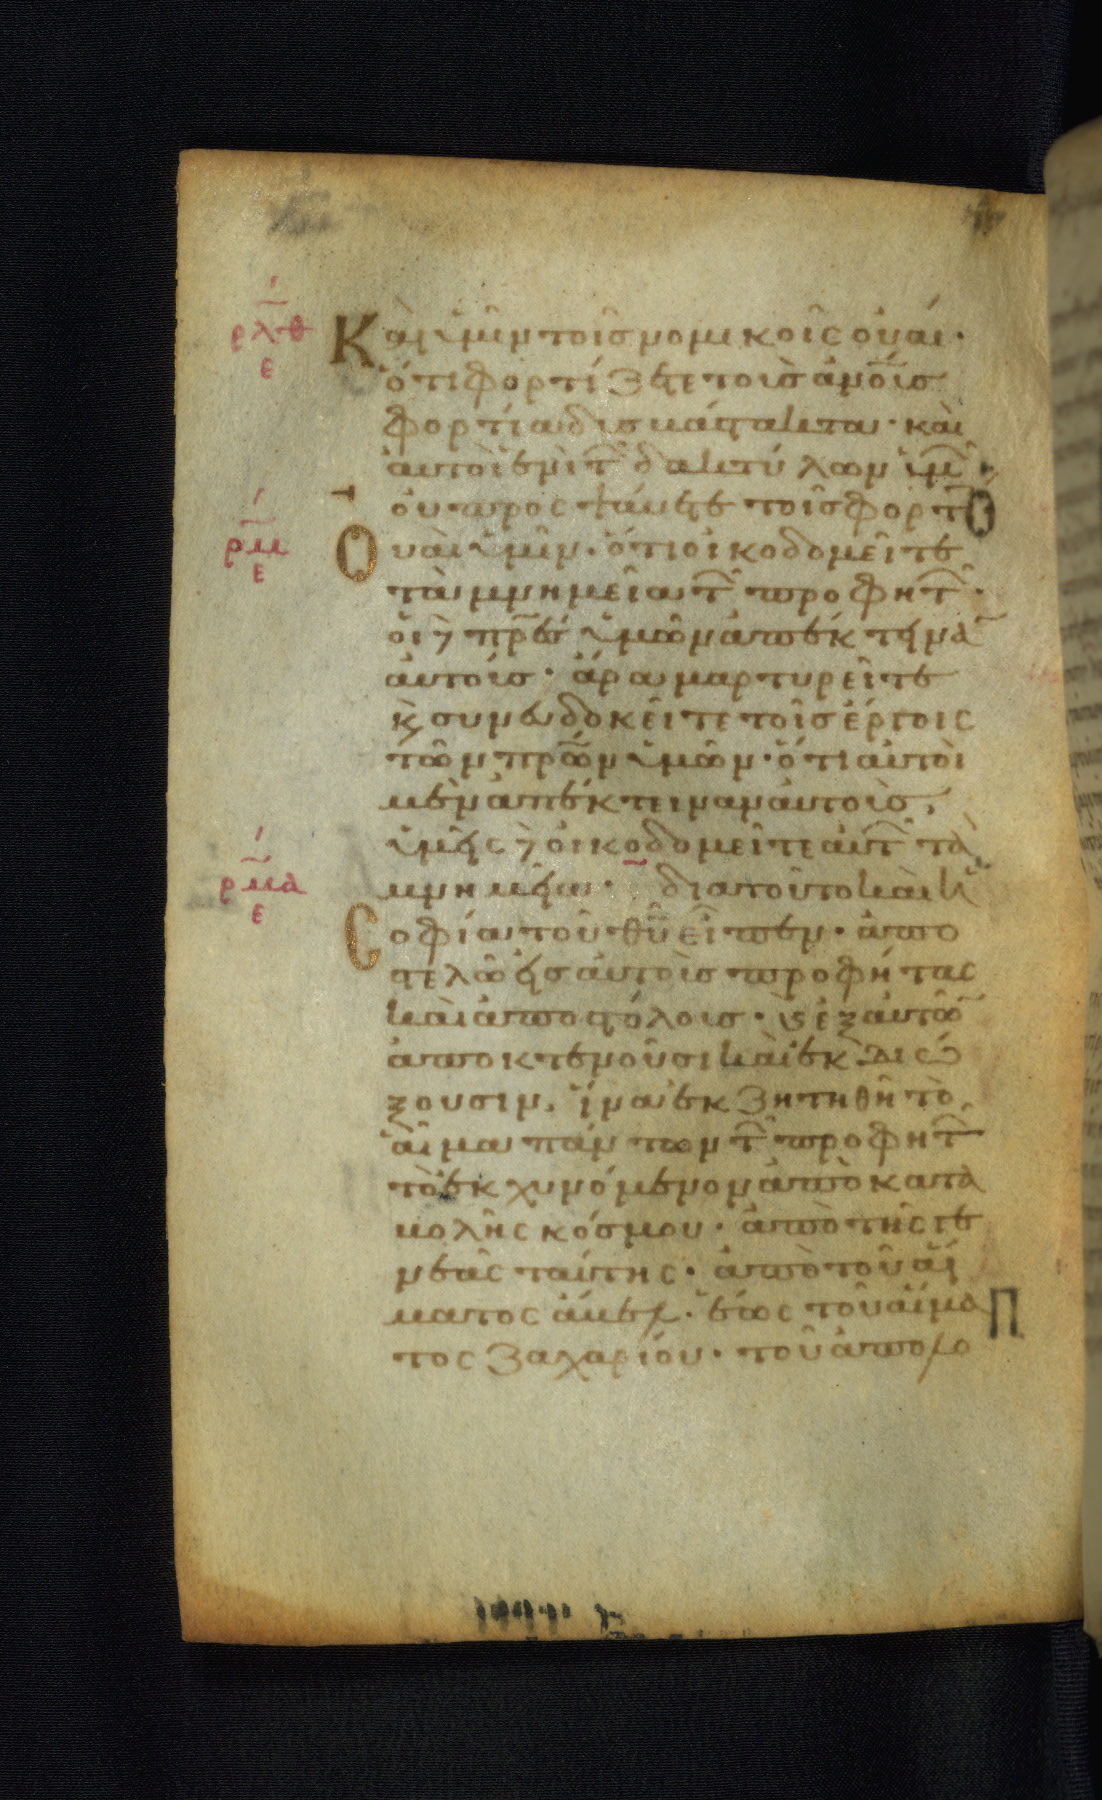 ρλθ
ε
Καὶ ὑμῖν τοῖς νομικοῖς οὐαί·
ὅτι φορτίζετε τοὺς ἀν̅ο̅υ̅ς
φορτία δυσβάστακτα· καὶ
αὐτοὶ ἑνὶ τ̅ δακτύλων ὑμ̅
οὐ προσψαύετε τοῖς φορτ̅
ρμ
ε
Οὐαὶ ὑμῖν· ὅτι οἰκοδομεῖτε
τὰ μνημεῖα τ̅ προφητ̅·
οἱ δὲ π̅ρ̅ε̅ς ὑμῶν ἀπέκτηνα̅
αὐτούς· ἄρα μαρτυρεῖτε
κ̀ συνευδοκεῖτε τοῖς ἔργοις
τῶν π̅ρ̅ω̅ν ὑμῶν· ὅτι αὐτοὶ
μὲν ἀπέκτειναν αὐτοὺς,
ὑμεῖς δὲ οἰκοδομεῖτε αὐτ̅ τὰ
ρμα
ε
μνημεῖα· διατοῦτο καὶ ἡ
Σοφία τοῦ θ̅υ̅ εἶπεν· ἀπο
στελῶ εἰς αὐτοὺς προφήτας
καὶ ἀποστόλους· κ̀ ἐξ αὐτῶ̅
ἀποκτενοῦσι καὶ ἐκδιώ
ξουσιν, ἵνα ἐκζητηθῆ τὸ
αἷμα πάντων τ̅ προφητ̅
τὸ ἐκχυνόμενον ἀπὸ κατα
βολῆς κόσμου· ἀπὸ τῆς γε
νεᾶς ταύτης· ἀπὸ τοῦ αἵ
ματος ἄβελ· ἕως τοῦ αἵμα
τος Ζαχαρίου· τοῦ ἀπολο